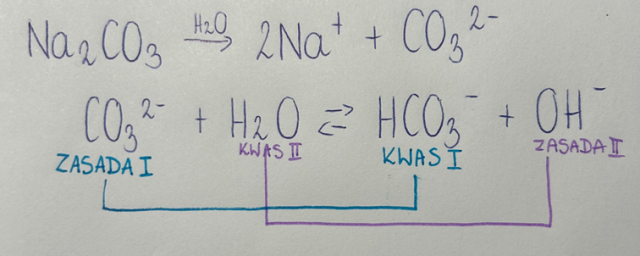 Na₂CO₃ H₂O → 2Na⁺ + CO₃²⁻
CO₃²⁻ + H₂O ⇌ HCO₃⁻ + OH⁻
ZASADA I KWAS II KWAS I ZASADA II